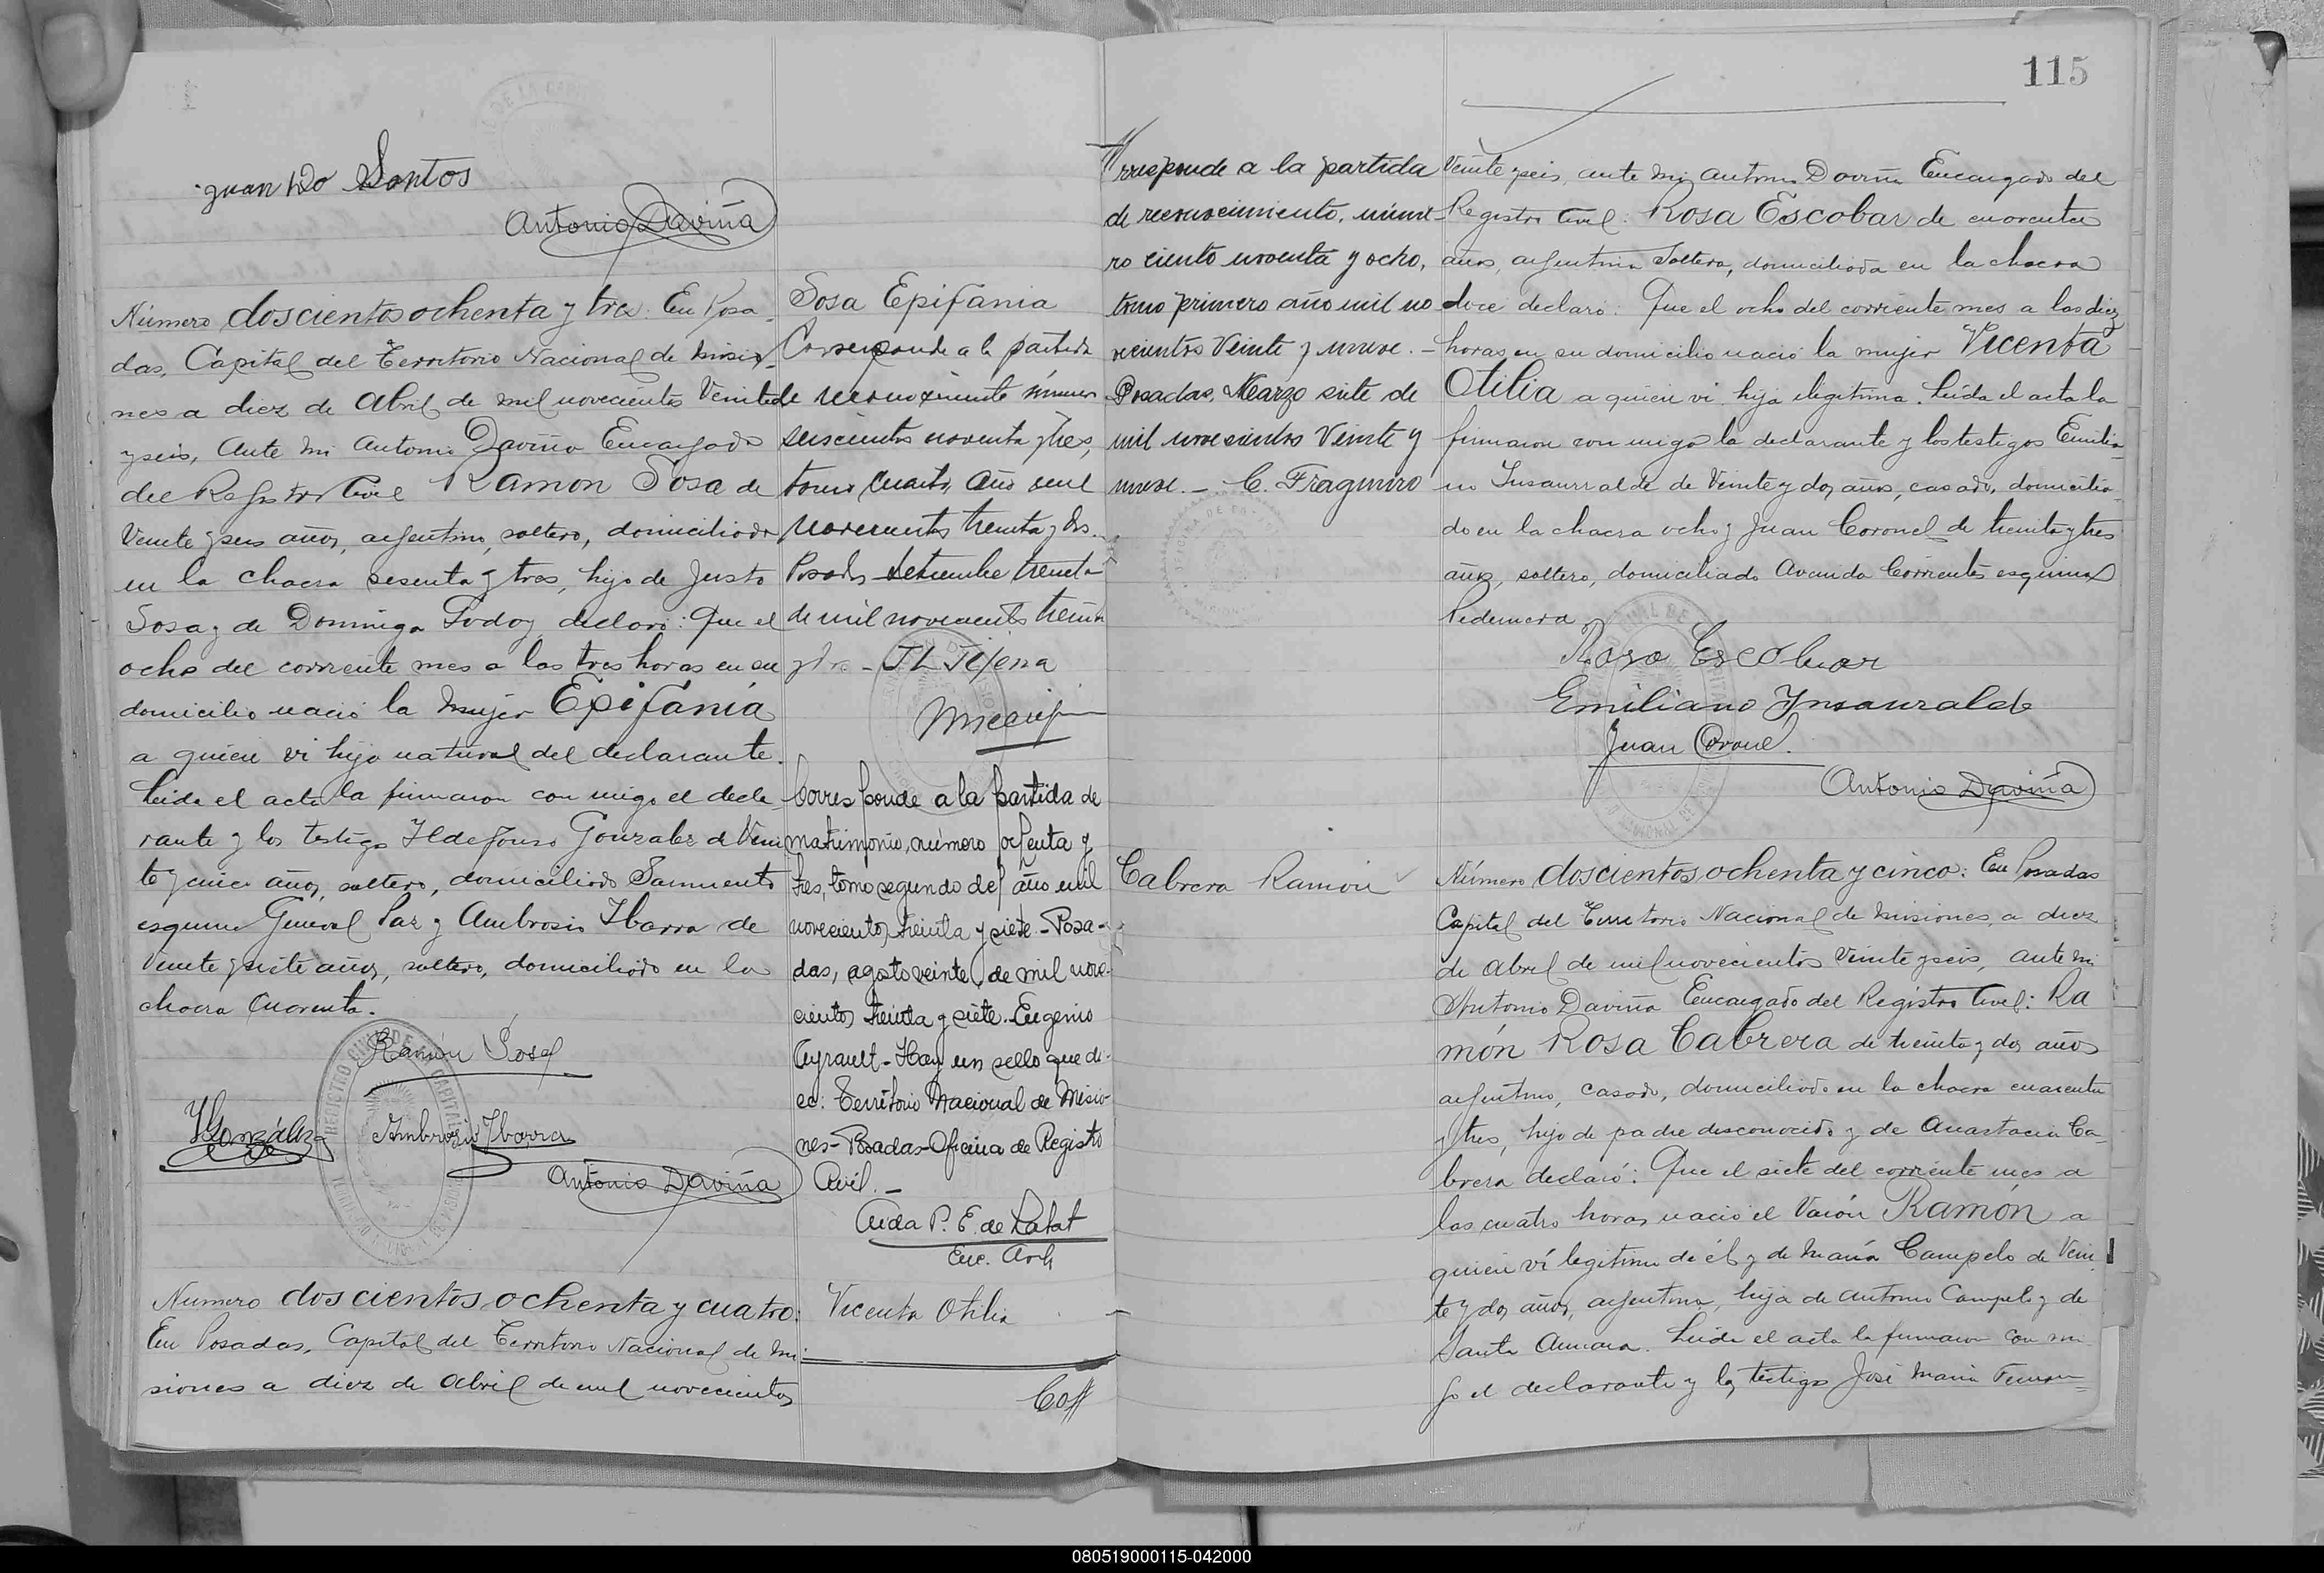 Juan Do Santos
Antonio Daviña
Número doscientos ochenta y tres: En Posa-
das, Capital del Territorio Nacional de Misio-
nes a diez de Abril de mil novecientos Veinte
y seis, Ante mi Antonio Daviña Encargado
del Registro Civil Ramon Sosa de
Veinte y seis años, argentino, soltero, domiciliado
en la chacra sesenta y tres, hijo de Justo
Sosa y de Dominga Godoy declaró: Que el
ocho del corriente mes a las tres horas en su
domicilio nació la mujer Epifania
a quien vi hija natural del declarante.
Leida el acta la firmaron con migo el decla-
rante y los testigos Ildefonso Gonzalez de Vein
te y cinco años, soltero, domiciliado Sarmiento
esquina General Paz y Ambrosio Ibarra de
Veinte y siete años, soltero, domiciliado en la
chacra Cuarenta.
Ramón Sosa
YGonzález
Ambrosio Ibarra
Antonio Daviña
Numero doscientos ochenta y cuatro:
En Posadas, Capital del Territorio Nacional de Mi-
siones a diez de Abril de mil novecientos
Sosa Epifania
Corresponde a la partida
de reconocimiento número
seiscientos noventa y tres,
tomo cuarto, año mil
novecientos treinta y dos.
Posadas Setiembre treinta
de mil novecientos trein
Corresponde a la partida de
matrimonio, número ochenta y
tres, tomo segundo del año mil
novecientos treinta y siete.-Posa-
das, agosto veinte de mil nove-
cientos treinta y siete.-Eugenio
Ayrault-Hay un sello que di-
ce: Territorio Nacional de Misio-
nes-Posadas-Oficina de Registro
Civil.-
Enc. Arch
Vicenta Otilia
Co//
115
rresponde a la partida
de reconocimiento, núme-
ro ciento noventa y ocho,
tomo primero año mil no
vecientos Veinte y nueve.-
Posadas, Marzo siete de
mil novecientos Veinte y
nueve.- C. Fragueiro
Cabrera Ramón
Veinte y seis, ante mi Antonio Daviña Encargado del
Registro Civil: Rosa Escobar de cuarenta
años, argentina Soltera, domiciliada en la chacra
doce declaró: Que el ocho del corriente mes a las diez
horas en su domicilio nació la mujer Vicenta
Otilia a quien vi hija ilegitima. Leida el acta la
firmaron con migo la declarante y los testigos Emilia-
no Insaurralde de Veinte y dos años, casado, domicilia-
do en la chacra ocho y Juan Coronel de treinta y tres
años, soltero, domiciliado Avenida Corrientes esquina
Pedernera
Rosa Escobar
Emiliano Ynsauralde
Juan Coronel.
Antonio Daviña
Número doscientos ochenta y cinco: En Posadas
Capital del Territorio Nacional de Misiones, a diez
de Abril de mil novecientos Veinte y seis, ante mi
Antonio Daviña Encargado del Registro Civil: Ra
món Rosa Cabrera de treinta y dos años
argentino, casado, domiciliado en la chacra cuarenta
y tres, hijo de padre desconocido y de Anastacia Ca-
brera declaró: Que el siete del corriente mes a
las cuatro horas nació el Varón Ramón a
quien ví legitimo de él y de María Campelo de Vein
te y dos años, argentina, hija de Antonio Campelo y de
Leida el acta la firmaron con mi
go el declarante y los testigos José María
080519000115-042000